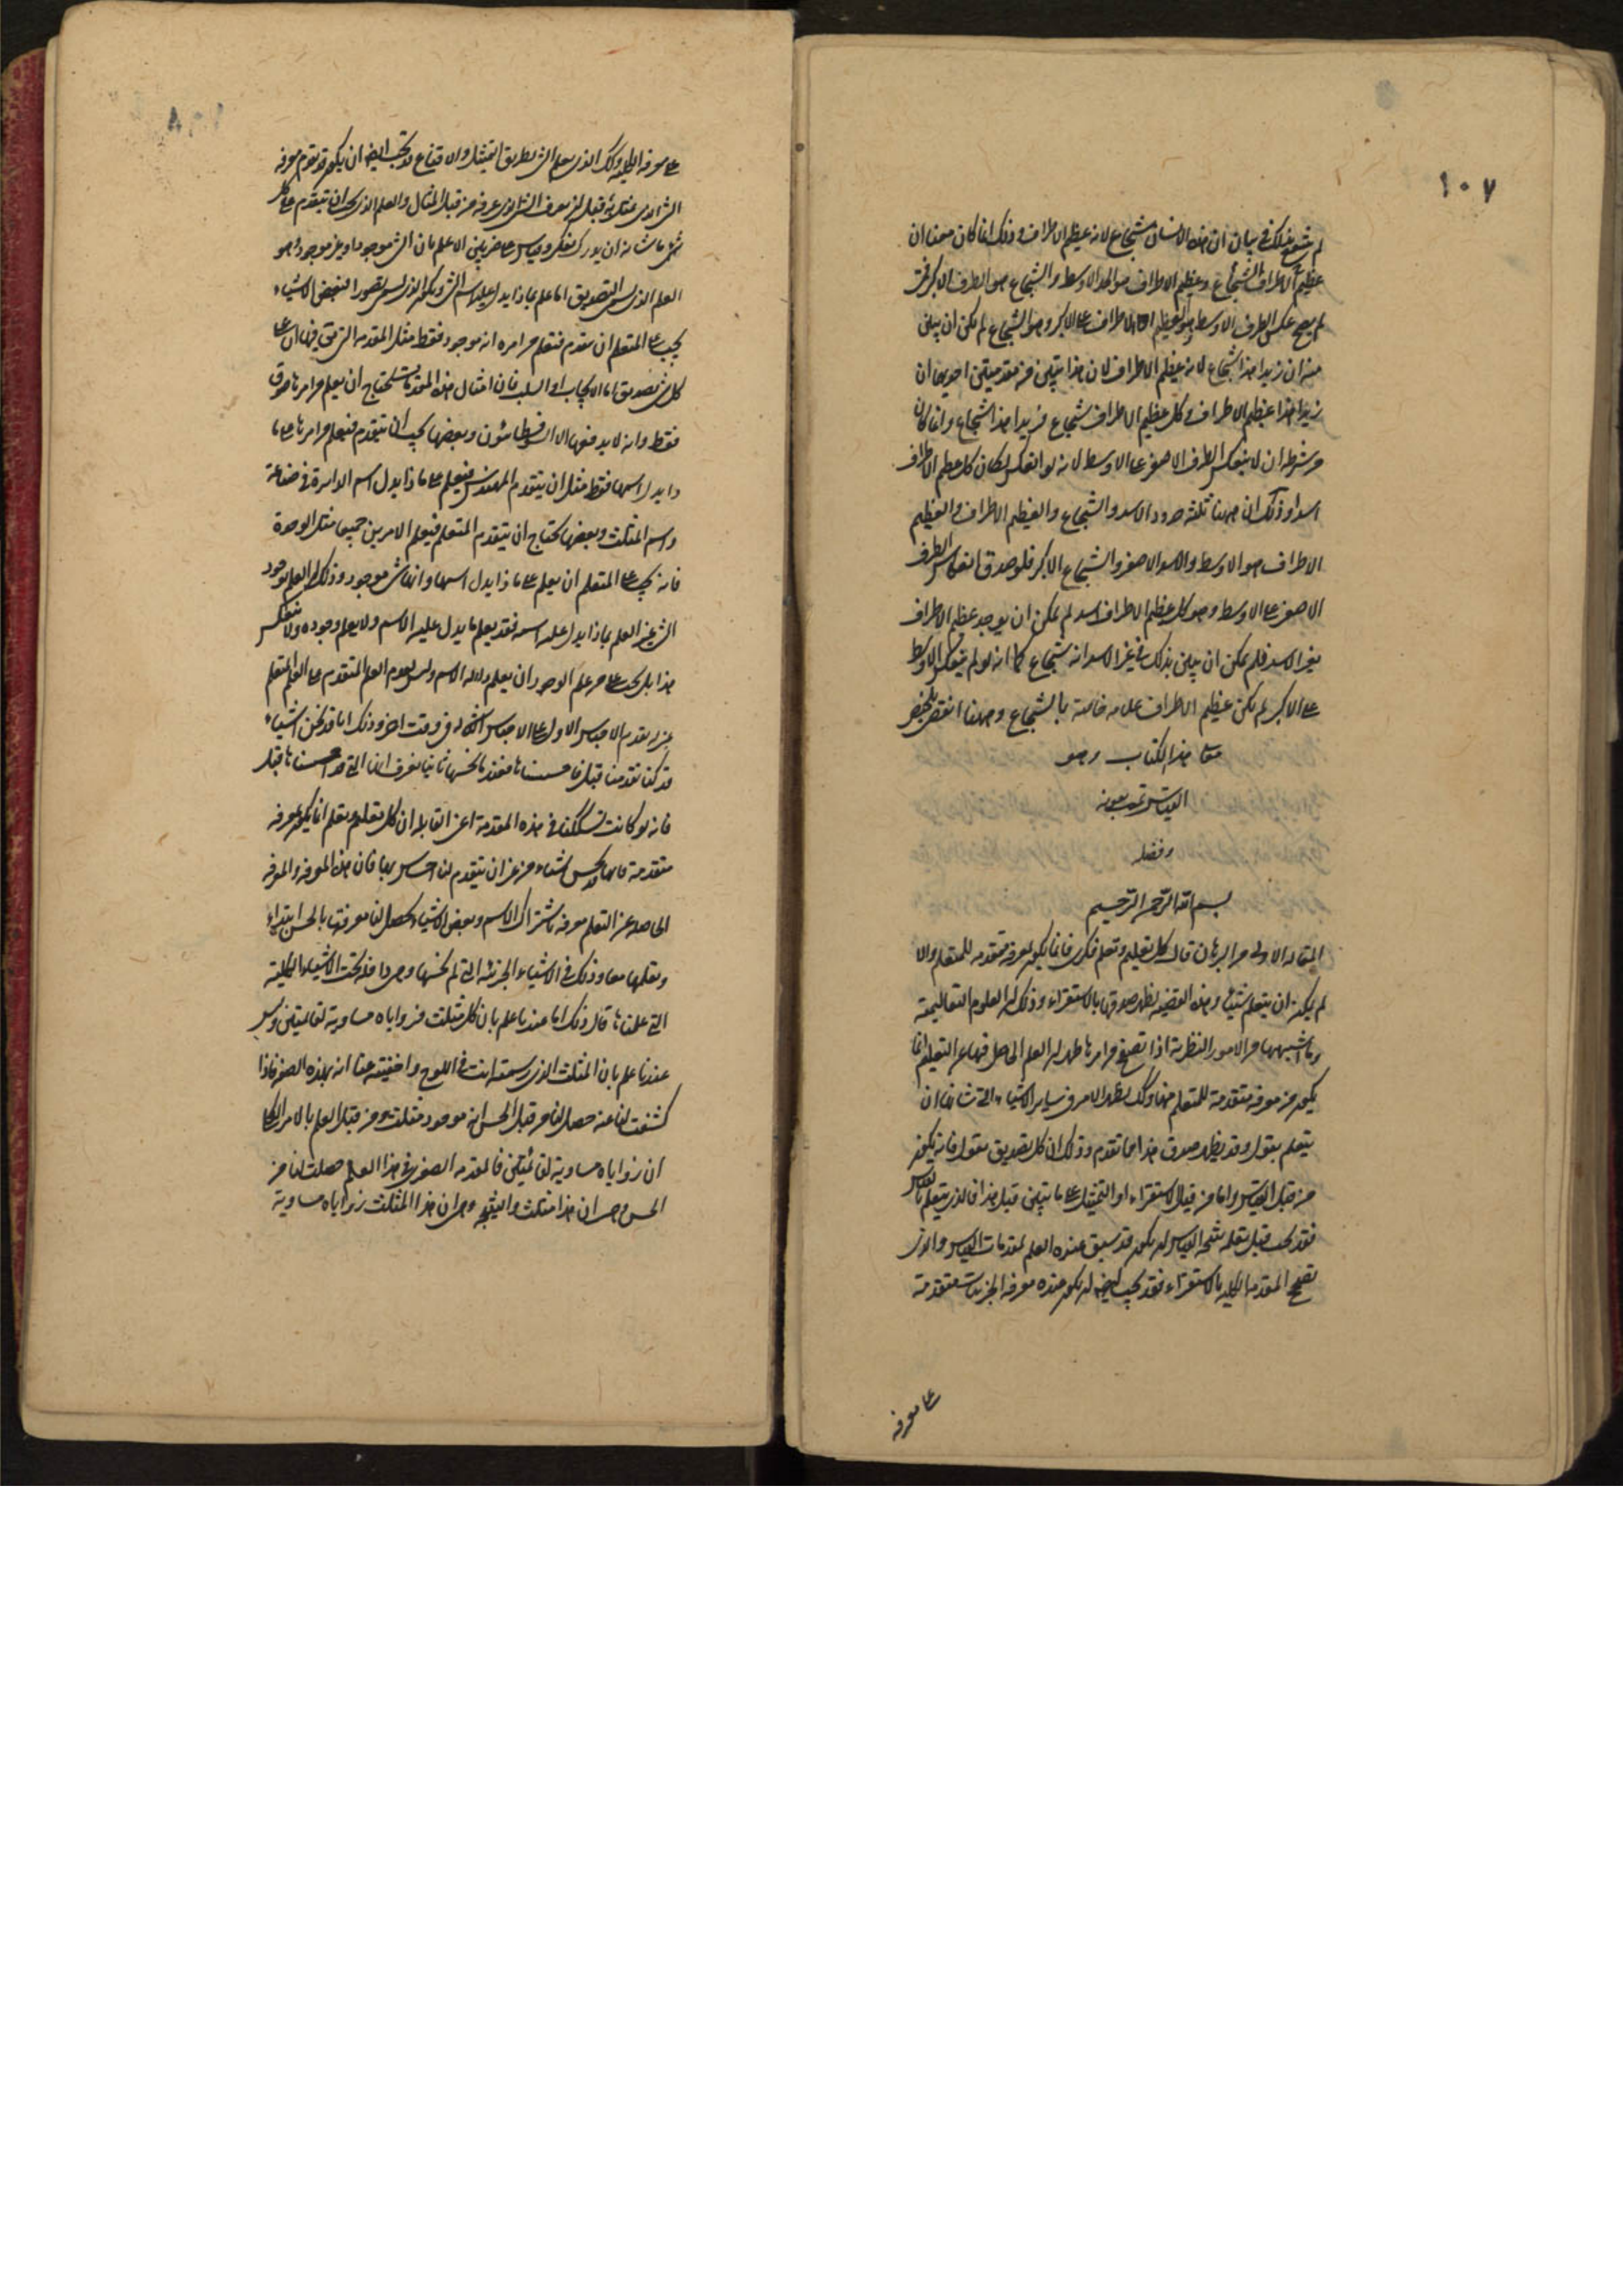 ١٠٧
لم ينتفع بذلك في بيان ان هذا الانسان شجاع لانه عظيم الاطراف وذلك انما كان معنا ان
عظيم الاطراف الشجاع وعظيم الاطراف هو الحد الاوسط والشجاع هو الطرف الاكبر فمتى
لم يصح عكس الطرف الاوسط وهو العظيم الاطراف على الاكبر وهو الشجاع لم يكن ان يبين
منه ان زيدا هذا شجاع لانه عظيم الاطراف لان هذا يتبين من مقدمتين احديهما ان
زيدا هذا عظيم الاطراف وكل عظيم الاطراف شجاع فزيدا هذا شجاع وانما كان
من شرطه ان لا ينعكس الطرف الاصغر على الاوسط لانه لو انعكس لكان كل عظيم الاطراف
اسدا وذلك ان ههنا ثلثة حدود الاسد والشجاع والعظيم الاطراف والعظيم
الاطراف هو الاوسط والاسد الاصغر والشجاع الاكبر فلو صدق انعكاس الطرف
الاصغر على الاوسط وهو كل عظيم الاطراف اسد لم يمكن ان يوجد عظيم الاطراف
بغير الاسد فلم يمكن ان يبين بذلك في غير الاسد انه شجاع كما انه لو لم ينعكس الاوسط
على الاكبر لم يكن عظيم الاطراف علامة خاصة بالشجاع وههنا انقضى تلخيص
معاني هذا الكتاب وهو
القياس تمت بعونه
وفضله
بسم الله الرحمن الرحيم
المقالة الاولى من البرهان قال كل تعليم وتعلم فكري فانما يكون بمعرفة متقدمة للمتعلم والا
لم يمكن ان يتعلم شيئا وهذه القضية يظهر صدقها بالاستقراء وذلك ان العلوم التعاليمية
وما اشبهها من الامور النظرية اذا تصفح من امرها ظهر ان العلم الحاصل فيها عن التعليم انما
يكون من معرفة متقدمة للمتعلم منها وكذلك يظهر الامر في ساير الاشياء التي شانها ان
يتعلم بقول وقد يظهر صدق هذا مما تقدم وذلك ان كل تصديق بقول فانه يكون
من قبل القياس واما من قبل الاستقراء او التمثيل على ما تبين قبل هذا فالذي يتعلم بالقياس
فقد يجب قبل تعلمه نتيجة القياس ان يكون قد سبق عنده العلم بمقدمات القياس والذي
تصح المقدمة الكلية بالاستقراء فقد يجب ايضا ان يكون عنده معرفة الجزئيات متقدمة
على معرفة
على معرفة الكلية وكذلك الذي يعلم الشيء بطريق التمثيل والاقناع قد يجب ايضا ان يكون قد تقدم معرفة
الشيء الذي تمثل به قبل ان يعرف الشيء الذي عرفه من قبل المثال والعلم الذي يجب ان يتقدم على كل
شيء ما شانه ان يدرك بفكر وقياس على ضربين اما علم بان الشيء موجود او غير موجود وهو
العلم الذي يسمى التصديق اما علم بماذا يدل عليه اسم الشيء ويكون الذي يسمى تصورا فبعض الاشياء
يجب على المتعلم ان يتقدم فتعلم من امره انه موجود فقط مثل المقدمة التي يقال فيها ان على
كل شيء يصدق اما الايجاب او السلب فان امثال هذه المقدمات تحتاج ان يعلم من امرها صدق
فقط وانه لا يدفعها الا السوفسطائيون وبعضها يجب ان يتقدم فيعلم من امرها على ما
ذا يدل اسمها فقط مثل ان يتقدم المهندس فيعلم على ماذا يدل اسم الدايرة في صناعته
واسم المثلث وبعضها يحتاج ان يتقدم المتعلم فيعلم الامرين جميعا مثل الوحدة
فانه يجب على المتعلم ان يعلم على ماذا يدل اسمها وانها شيء موجود وذلك ان العلم بوجود
الشيء غير العلم بماذا يدل عليه اسمه فقد يعلم ما يدل عليه الاسم ولا يعلم وجوده ولا ينعكس
هذا بل يجب على من علم الوجود ان يعلم دلالة الاسم وليس يلزم العلم المتقدم على العلم المتعلم
قد كنا تقدمنا قبل فاحسسناها فعندما نحسها ثانيا نعرف انها التي قد احسسناها قبل
فانه لو كانت تشككنا في هذه المقدمة اعني القايلة ان كل تعليم وتعلم انما يكون بمعرفة
متقدمة فانا قد نحس اشياء من غير ان يتقدم لنا احساس بها فان هذه المعرفة والمعرفة
الحاصلة عن التعلم معرفة باشتراك الاسم وبعض الاشياء يحصل لنا معرفتها بالحس ابتداء
ونعلمها معا وذلك في الاشياء الجزئية التي لم نحسها وهي داخلة تحت الاشياء الكلية
التي علمناها قال وذلك اما عندنا علم بان كل مثلث فزواياه مساوية لقائمتين وليس
عندنا علم بان المثلث الذي رسمته انت في اللوح واخفيته عنا انه بهذه الصفة فاذا
كشفت لنا عنه حصل لنا من قبل الحس انه موجود مثلث ومن قبل العلم بالامر الكلي
ان زواياه مساوية لقائمتين فالمقدمة الصغرى في هذا العلم حصلت لنا من
الحس وهي ان هذا مثلث والنتيجة وهي ان هذا المثلث زواياه مساوية